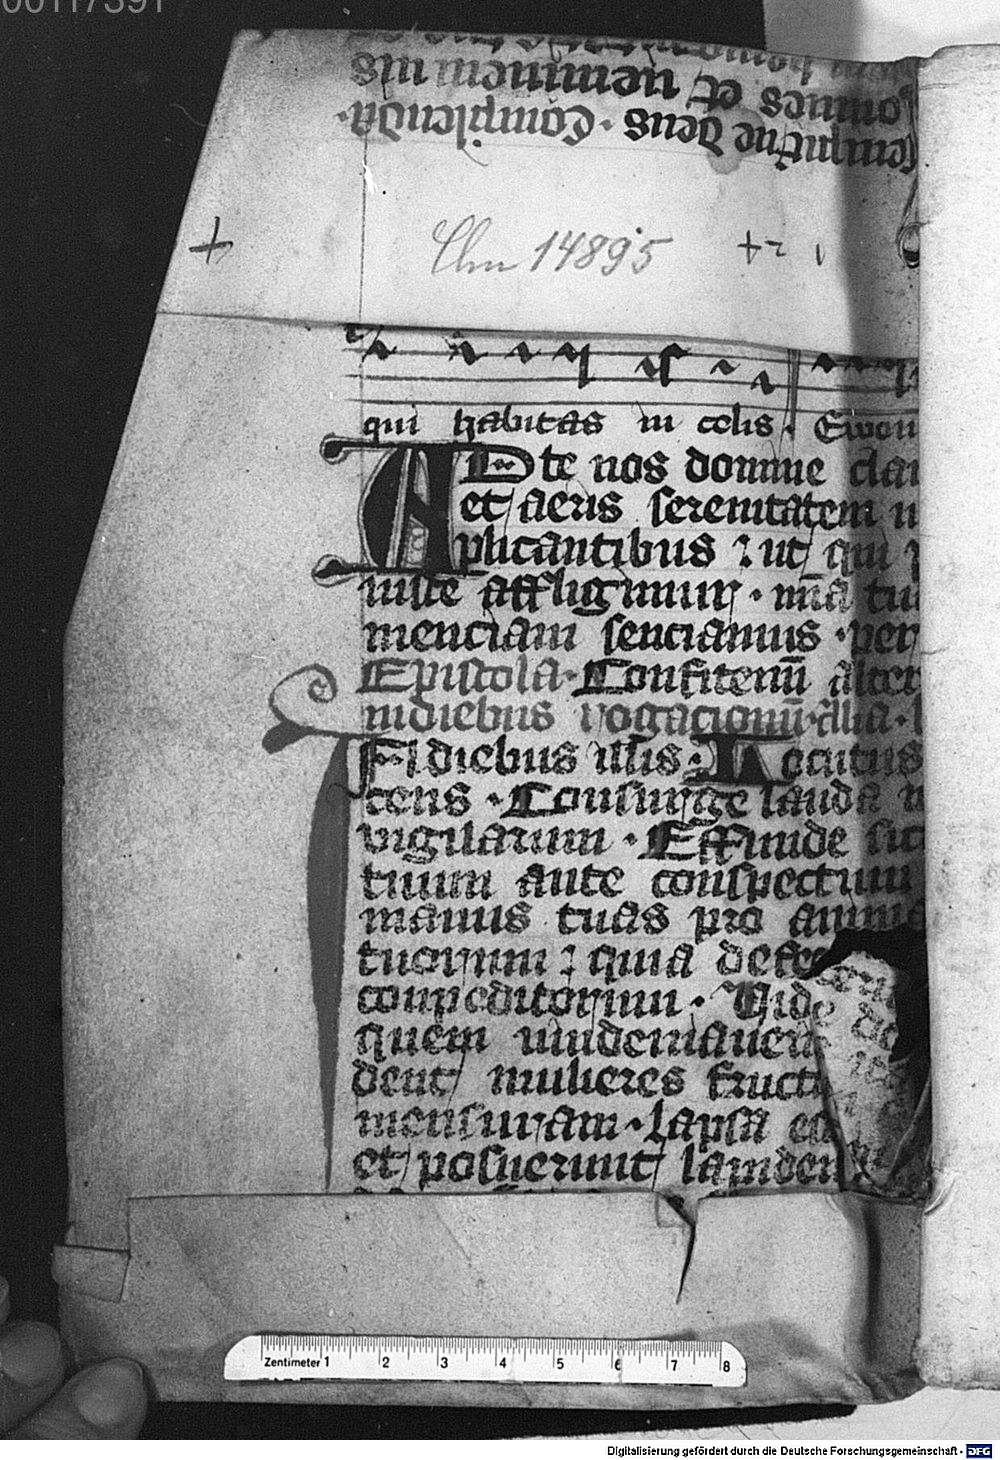 00117391
omnes et neminem nis
sempiterne deus. Complenda.
Clm 14895
qui habitas in celis. Ewou
AD te nos domine cla
et aeris serenitatem
plicantibus : ut qui
iuste affligimur . mia tu
menciam senciamus . per
Epistola. Confitemi alter
In diebus rogacionum. Alia.
IN diebus illis. Locutus
cens . Consurge lauda
vigiliarum . Effunde sic
tuum ante conspectum
manus tuas pro anima
tuorum : quia defe
conpeditorum . Vide
quem vindemiaueri
dent mulieres fructu
mensuram . Lapsa e
et posuerunt lapidem
Zentimeter 1 2 3 4 5 6 7 8
Digitalisierung gefördert durch die Deutsche Forschungsgemeinschaft - DFG